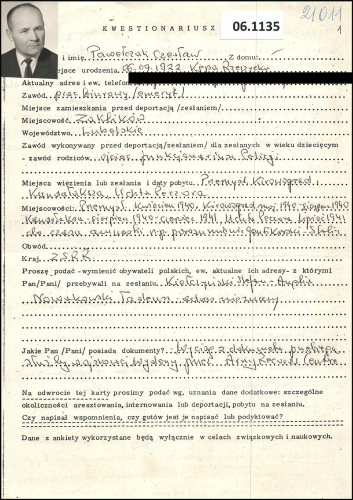 KWESTIONARIUSZ
06.1135
21011
1
i imię Pawełczak Czesław z domu:
miejsce urodzenia. 06.09.1922 Kępa Rzeczycka
Aktualny adres i ew. telefon
Zawód prac. biurowy /emeryt/
Miejsce zamieszkania przed deportacją /zesłaniem/
Miejscowość Zaklików
Województwo Lubelskie
Zawód wykonywany przed deportacją/zesłaniem/ dla zesłanych w wieku dziecięcym
- zawód rodziców. ojciec funkcjonariusz Policji
Miejsca więzienia lub zesłania i daty pobytu. Przemyśl Kirowograd
Kandałaksza, Uchta Peczora
Miejscowości Przemyśl kwiecień 1940, Kirowograd maj 1940 1940
sierpień 1940 czerwiec 1941, Uchta Peczora lipiec 1941
do czasu
Obwód
Kraj ZSRR
Proszę podać -wymienić obywateli polskich, ew. aktualne ich adresy- z którymi
Pan/Pani/ przebywali na zesłaniu. Stefan
Nowakowski Tadeusz adres nieznany
Jakie Pan /Pani/ posiada dokumenty? Wyciąg z dokumentu przebiegu
służby wojskowej wydany przez
Na odwrocie tej karty prosimy podać wg. uznania dane dodatkowe: szczególne
okoliczności aresztowania, internowania lub deportacji, pobytu na zesłaniu.
Czy napisał wspomnienia, czy gotów jest je napisać lub podyktować?
Dane z ankiety wykorzystane będą wyłącznie w celach związkowych i naukowych.